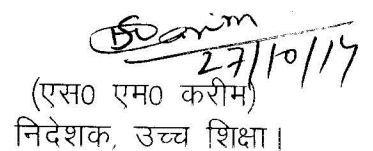 27/10/14
(एस0 एम0 करीम)
निदेशक, उच्च शिक्षा।